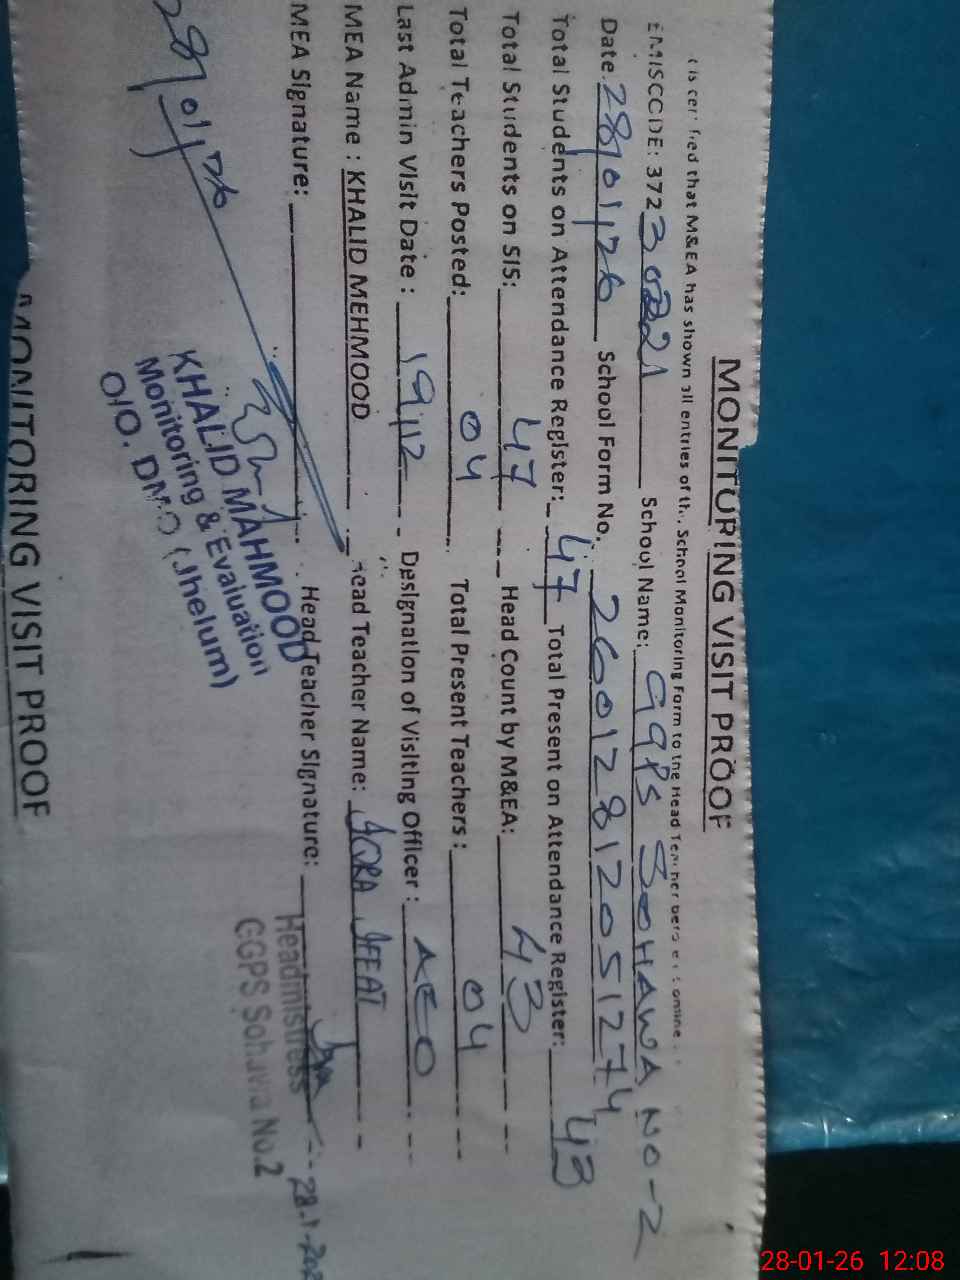 MONITORING VISIT PROOF
is certified that M&EA has shown all entries of the School Monitoring Form to the Head Teacher before online
EMISCODE: 372 School Name: GGPS SOHAWA NO-2
Date: 28/01/26 School Form No. 26012812051274
Total Students on Attendance Register: 47 Total Present on Attendance Register: 43
Total Students on SIS: 47 Head Count by M&EA: 43
Total Teachers Posted: 04 Total Present Teachers: 04
Last Admin Visit Date: 19/12 Designation of Visiting Officer: AEO
MEA Name: KHALID MEHMOOD Head Teacher Name: IQRA IFFAT
MEA Signature: Head Teacher Signature:
28.1.202
Headmistress
GGPS Sohawa No.2
KHALID MAHMOOD
Monitoring & Evaluation
O/O. DMO (Jhelum)
28/01/26
MONITORING VISIT PROOF
28-01-26 12:08